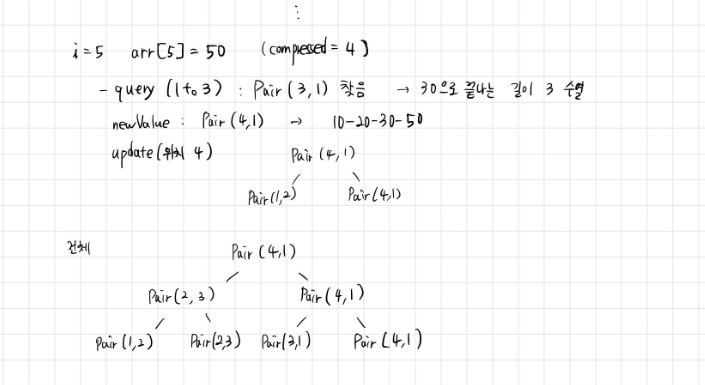 ⋮
i=5 arr[5] = 50 (compressed = 4)
- query (1 to 3) : Pair (3,1) 찾음 → 30으로 끝나는 길이 3 수열
newValue : Pair (4,1) → 10-20-30-50
update(위치 4) Pair (4,1)
Pair(1,2) Pair(4,1)
전체 Pair (4,1)
Pair(2,3) Pair(4,1)
Pair (1,2) Pair(2,3) Pair(3,1) Pair (4,1)